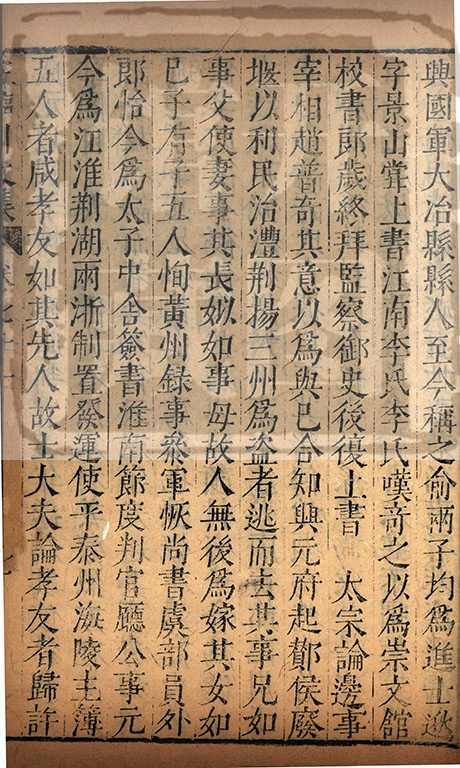 興國軍大冶縣縣人至今稱之俞兩子均爲進士逖
字景山嘗上書江南李氏李氏嘆奇之以爲崇文館
校書郎歲終拜監察御史後復上書 太宗論邊事
宰相趙普奇其意以爲與己合知興元府起鄼侯廢
堰以利民治澧荆揚三州爲盗者逃而去其事兄如
事父使妻事其長姒如事母故人無後爲嫁其女如
已子有子五人恂黄州録事叅軍恢尚書虞部員外
郎怡今爲太子中舍簽書淮南節度判官廳公事元
今爲江淮荆湖兩浙制置發運使平泰州海陵主簿
五人者咸孝友如其先人故士大夫論孝友者歸許